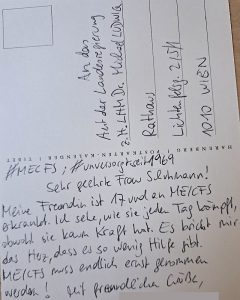 An das
Amt der Landesregierung
z.H. LHM Dr. Michael LUDWIG
Rathaus
Lichtenfelsg. 2/5/1
1010 WIEN
HARENBERG POSTKARTEN-KALENDER TIBET
#MECFS ; #unversorgtseit1969
Sehr geehrte Frau
Meine Freundin ist 17 und an ME/CFS
erkrankt. Ich sehe, wie sie jeden Tag kämpft,
obwohl sie kaum Kraft hat. Es bricht mir
das Herz, dass es so wenig Hilfe gibt.
ME/CFS muss endlich ernst genommen
werden! Mit freundlichen Grüße,